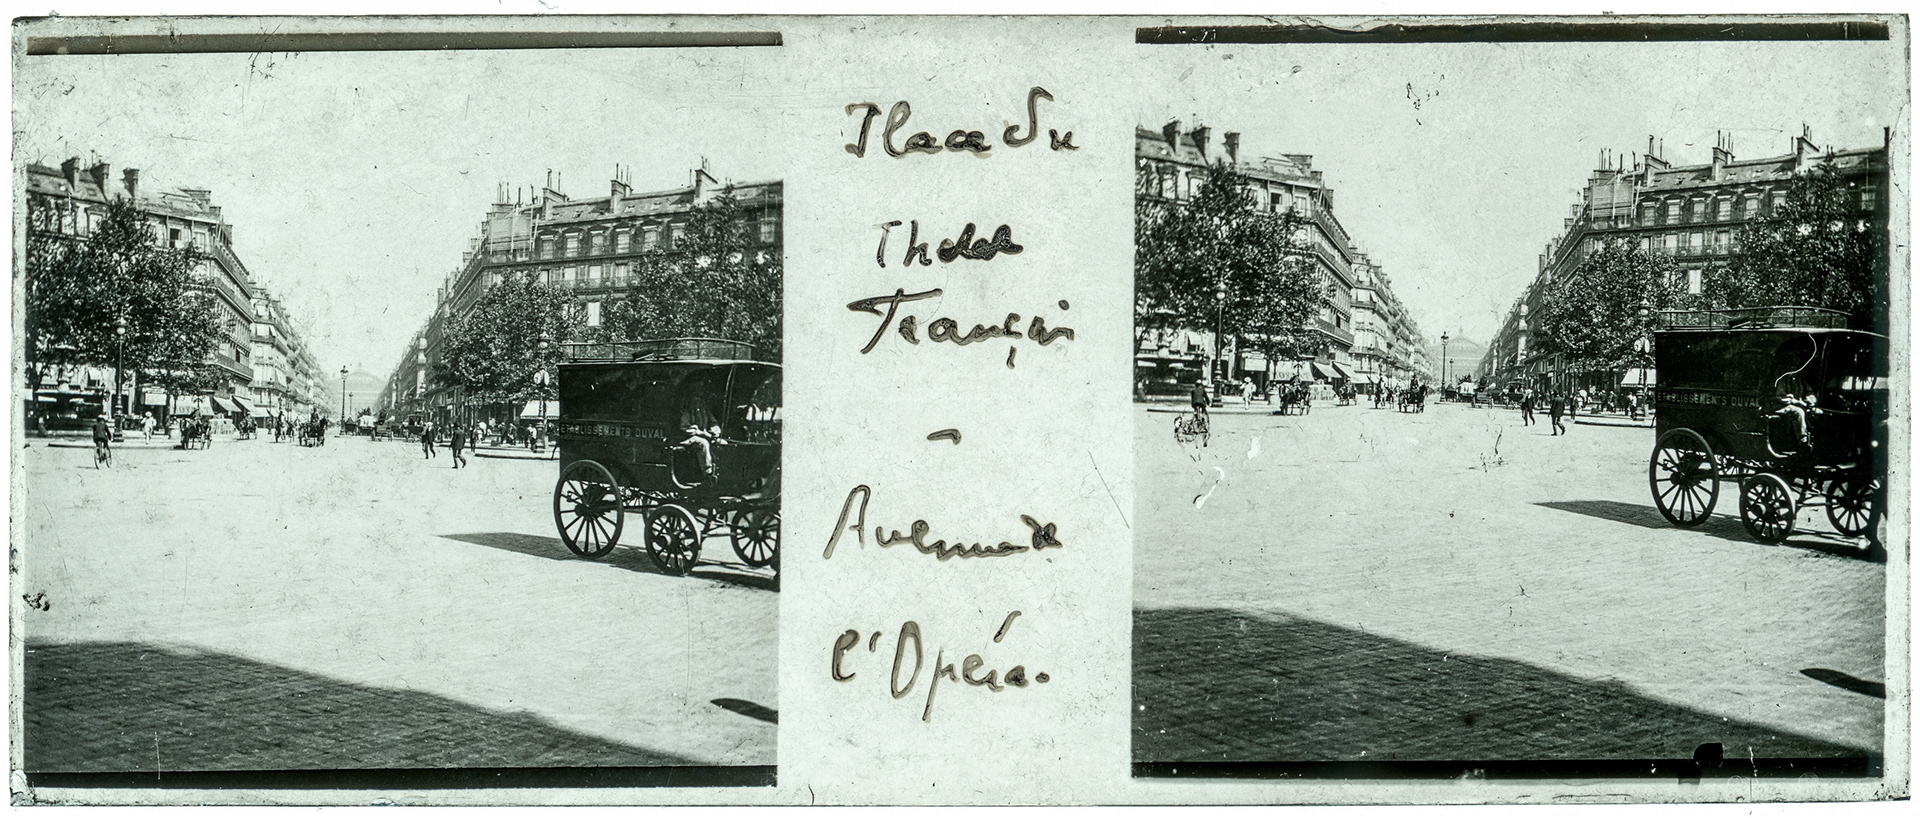 Place du
Théâtre
Français
-
Avenue de
l'Opéra.
ETABLISSEMENTS DUVAL
ETABLISSEMENTS DUVAL